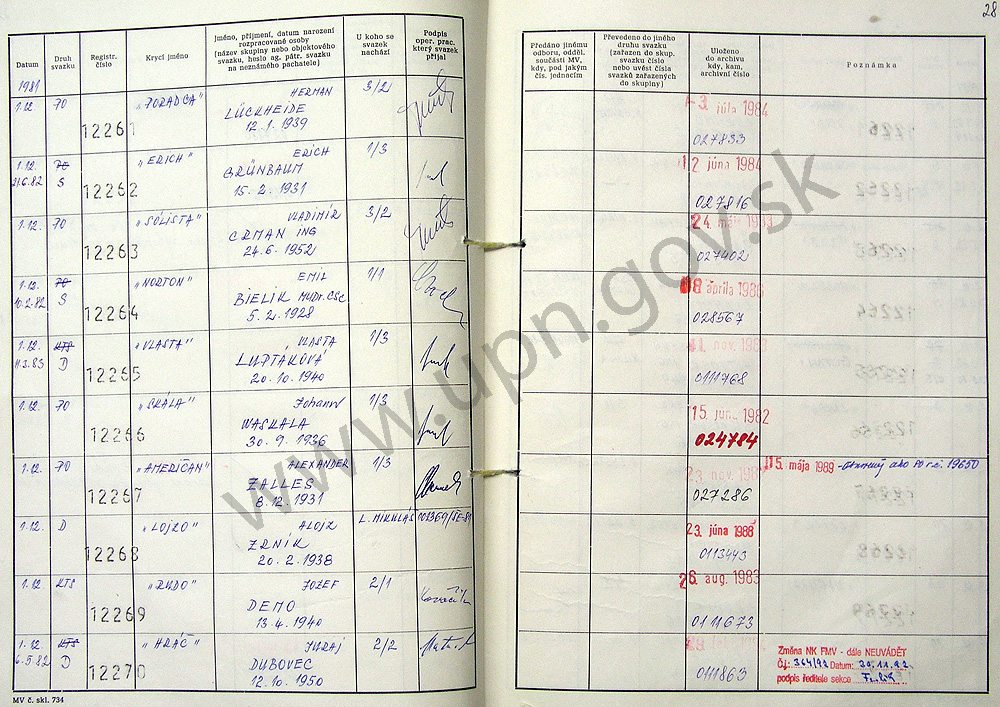 28
Datum
Druh svazku
Registr. číslo
Krycí jméno
Jméno, příjmení, datum narození
rozpracované osoby
(název skupiny nebo objektového
svazku, heslo ag. pátr. svazku
na neznámého pachatele)
U koho se
svazek
nachází
Podpis
oper. prac.
který svazek
přijal
Předáno jinému
odboru, odděl.
součásti MV,
kdy, pod jakým
čís. jednacím
Převedeno do jiného
druhu svazku
(zařazen do skup.
svazku číslo
nebo uvést čísla
svazků zařazených
do skupiny)
Uloženo
do archivu
kdy, kam,
archivní číslo
Poznámka
1981
1.12. PO 12261 "PORADCA" HERMAN 3/2
LÜCKHEIDE
12.1.1939
-3. júla 1984
027833
1.12. PO 12262 "ERICH" ERICH 1/3
21.6.82 S GRÜNBAUM
15.2.1931
12. júna 1984
027816
1.12. PO 12263 "SÓLISTA" VLADIMÍR 3/2
CRMAN ING
24.6.1952
027402
1.12. PO 12264 "NORTON" EMIL 1/1
10.2.82 S BIELIK MUDr. CSc
5.2.1928
08 apríla 1986
028567
1.12. KTS 12265 "VLASTA" VLASTA 1/3
11.3.83 D LUPTÁKOVÁ
20.10.1940
0111768
1.12. PO 12266 "SKALA" Johann 1/3
WASKALA
30.9.1936
15. júna 1982
024784
1.12. PO 12267 "AMERIČAN" ALEXANDER 1/3
ZALLES
8.12.1931
027286
15. mája 1989 - Otvorený ako PO r.č. 19650
1.12. D 12268 "LOJZO" ALOJZ L. MIKULÁŠ
ZRNÍK
20.2.1938
23. júna 1988
0113443
1.12 KTS 12269 "RUDO" JOZEF 2/1
DEMO
13.4.1940
26. aug. 1983
0111673
1.12. KTS 12270 "HRÁČ" JURAJ 2/2
6.5.82 D DUBOVEC
12.10.1950
0111863
Změna NK FMV - dále NEUVÁDĚT
Č.j.: 364/92 Datum: 30.11.92
podpis ředitele sekce
MV č. skl. 734
www.upn.gov.sk